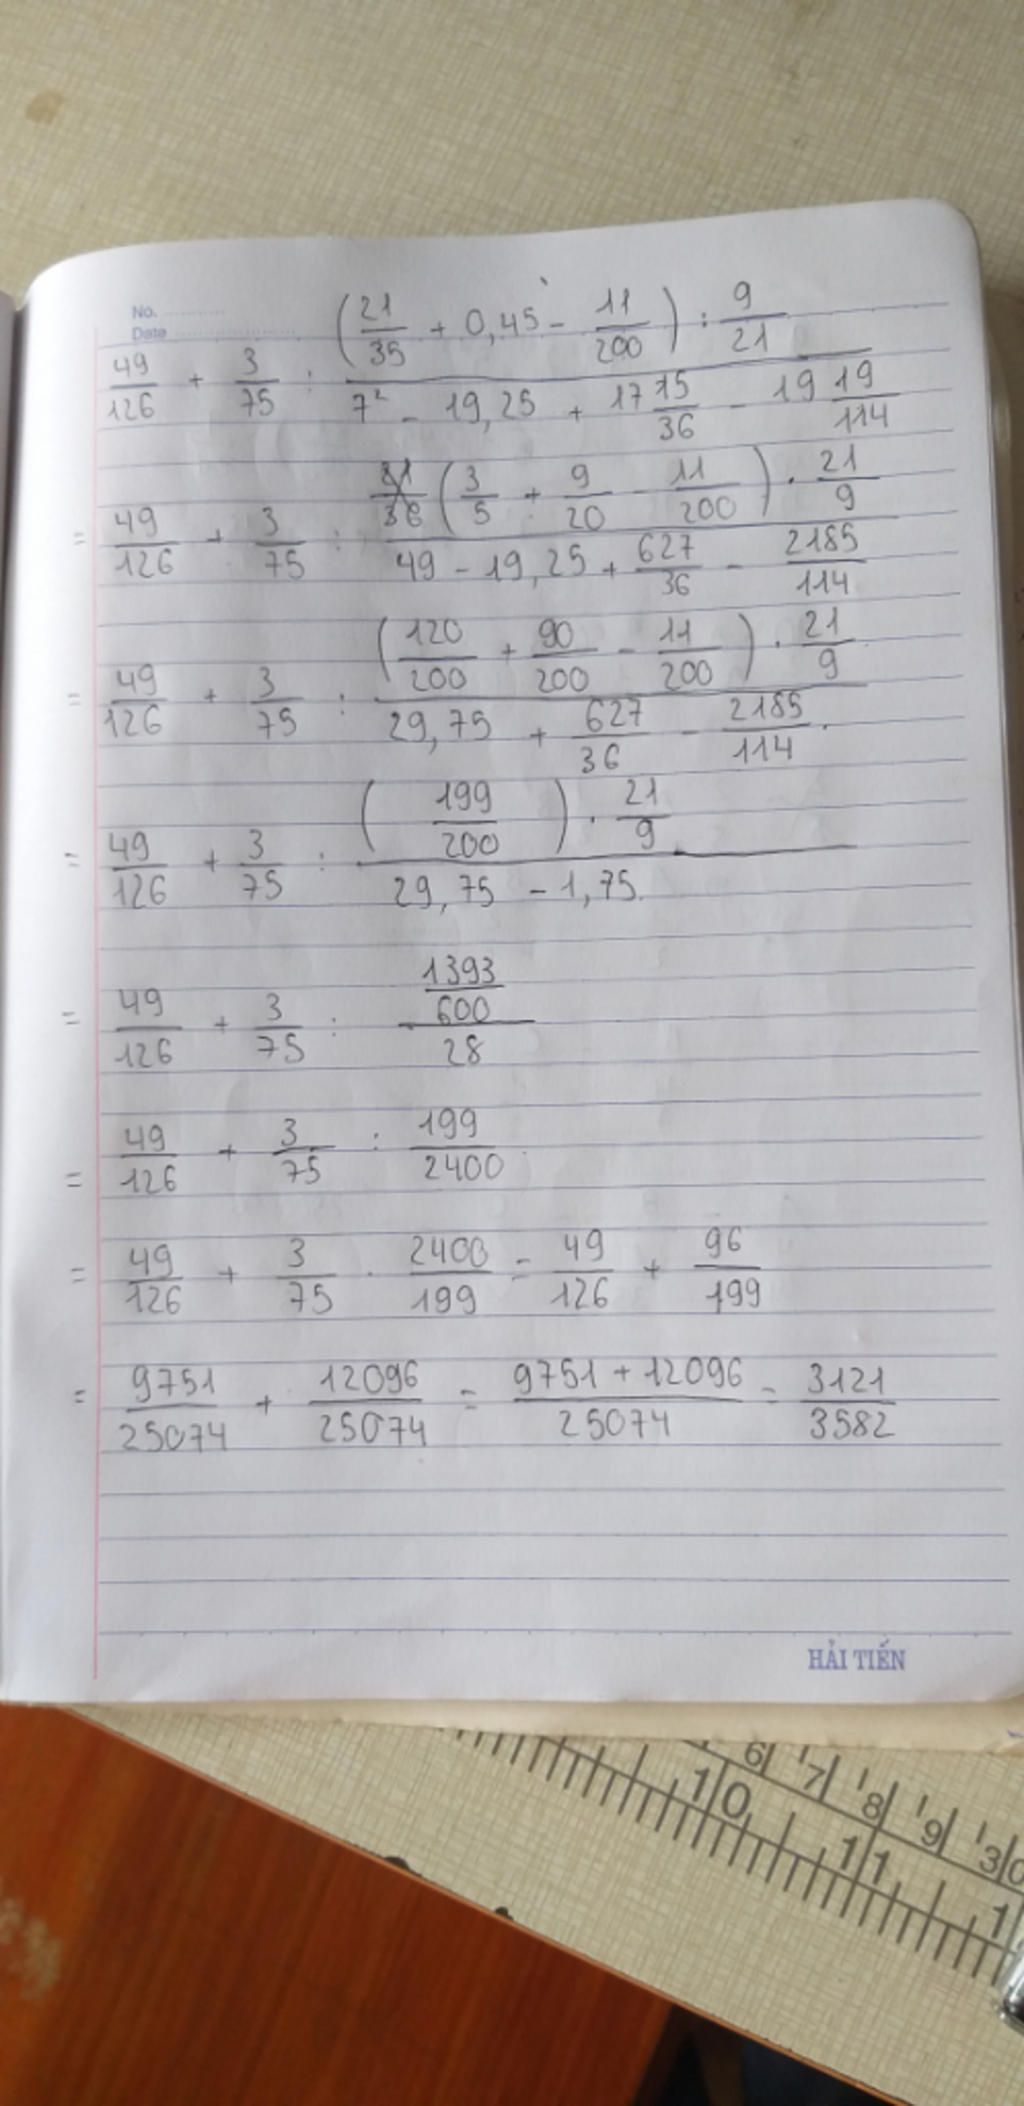 No.
Date
49/126 + 3/75 : ((21/35 + 0,45 - 11/200) : 9/21) / (7² - 19,25 + 17 15/36 - 19 19/114)
= 49/126 + 3/75 : ((3/5 + 9/20 - 11/200) . 21/9) / (49 - 19,25 + 627/36 - 2185/114)
= 49/126 + 3/75 : ((120/200 + 90/200 - 11/200) . 21/9) / (29,75 + 627/36 - 2185/114.)
= 49/126 + 3/75 : ((199/200) . 21/9) / (29,75 - 1,75.)
= 49/126 + 3/75 : (1393/600) / 28
= 49/126 + 3/75 : 199/2400
= 49/126 + 3/75 . 2400/199 = 49/126 + 96/199
= 9751/25074 + 12096/25074 = (9751 + 12096)/25074 = 3121/3582
HẢI TIẾN
6 7 8 9 30
10 11 1